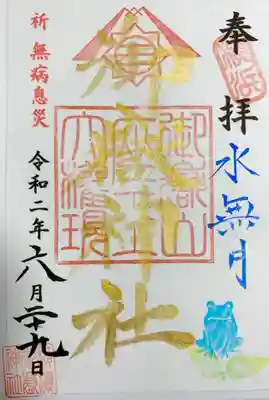 奉拝
水無月
御嶽神社
御嶽山
大権現
祈 無病息災
令和二年六月二十九日